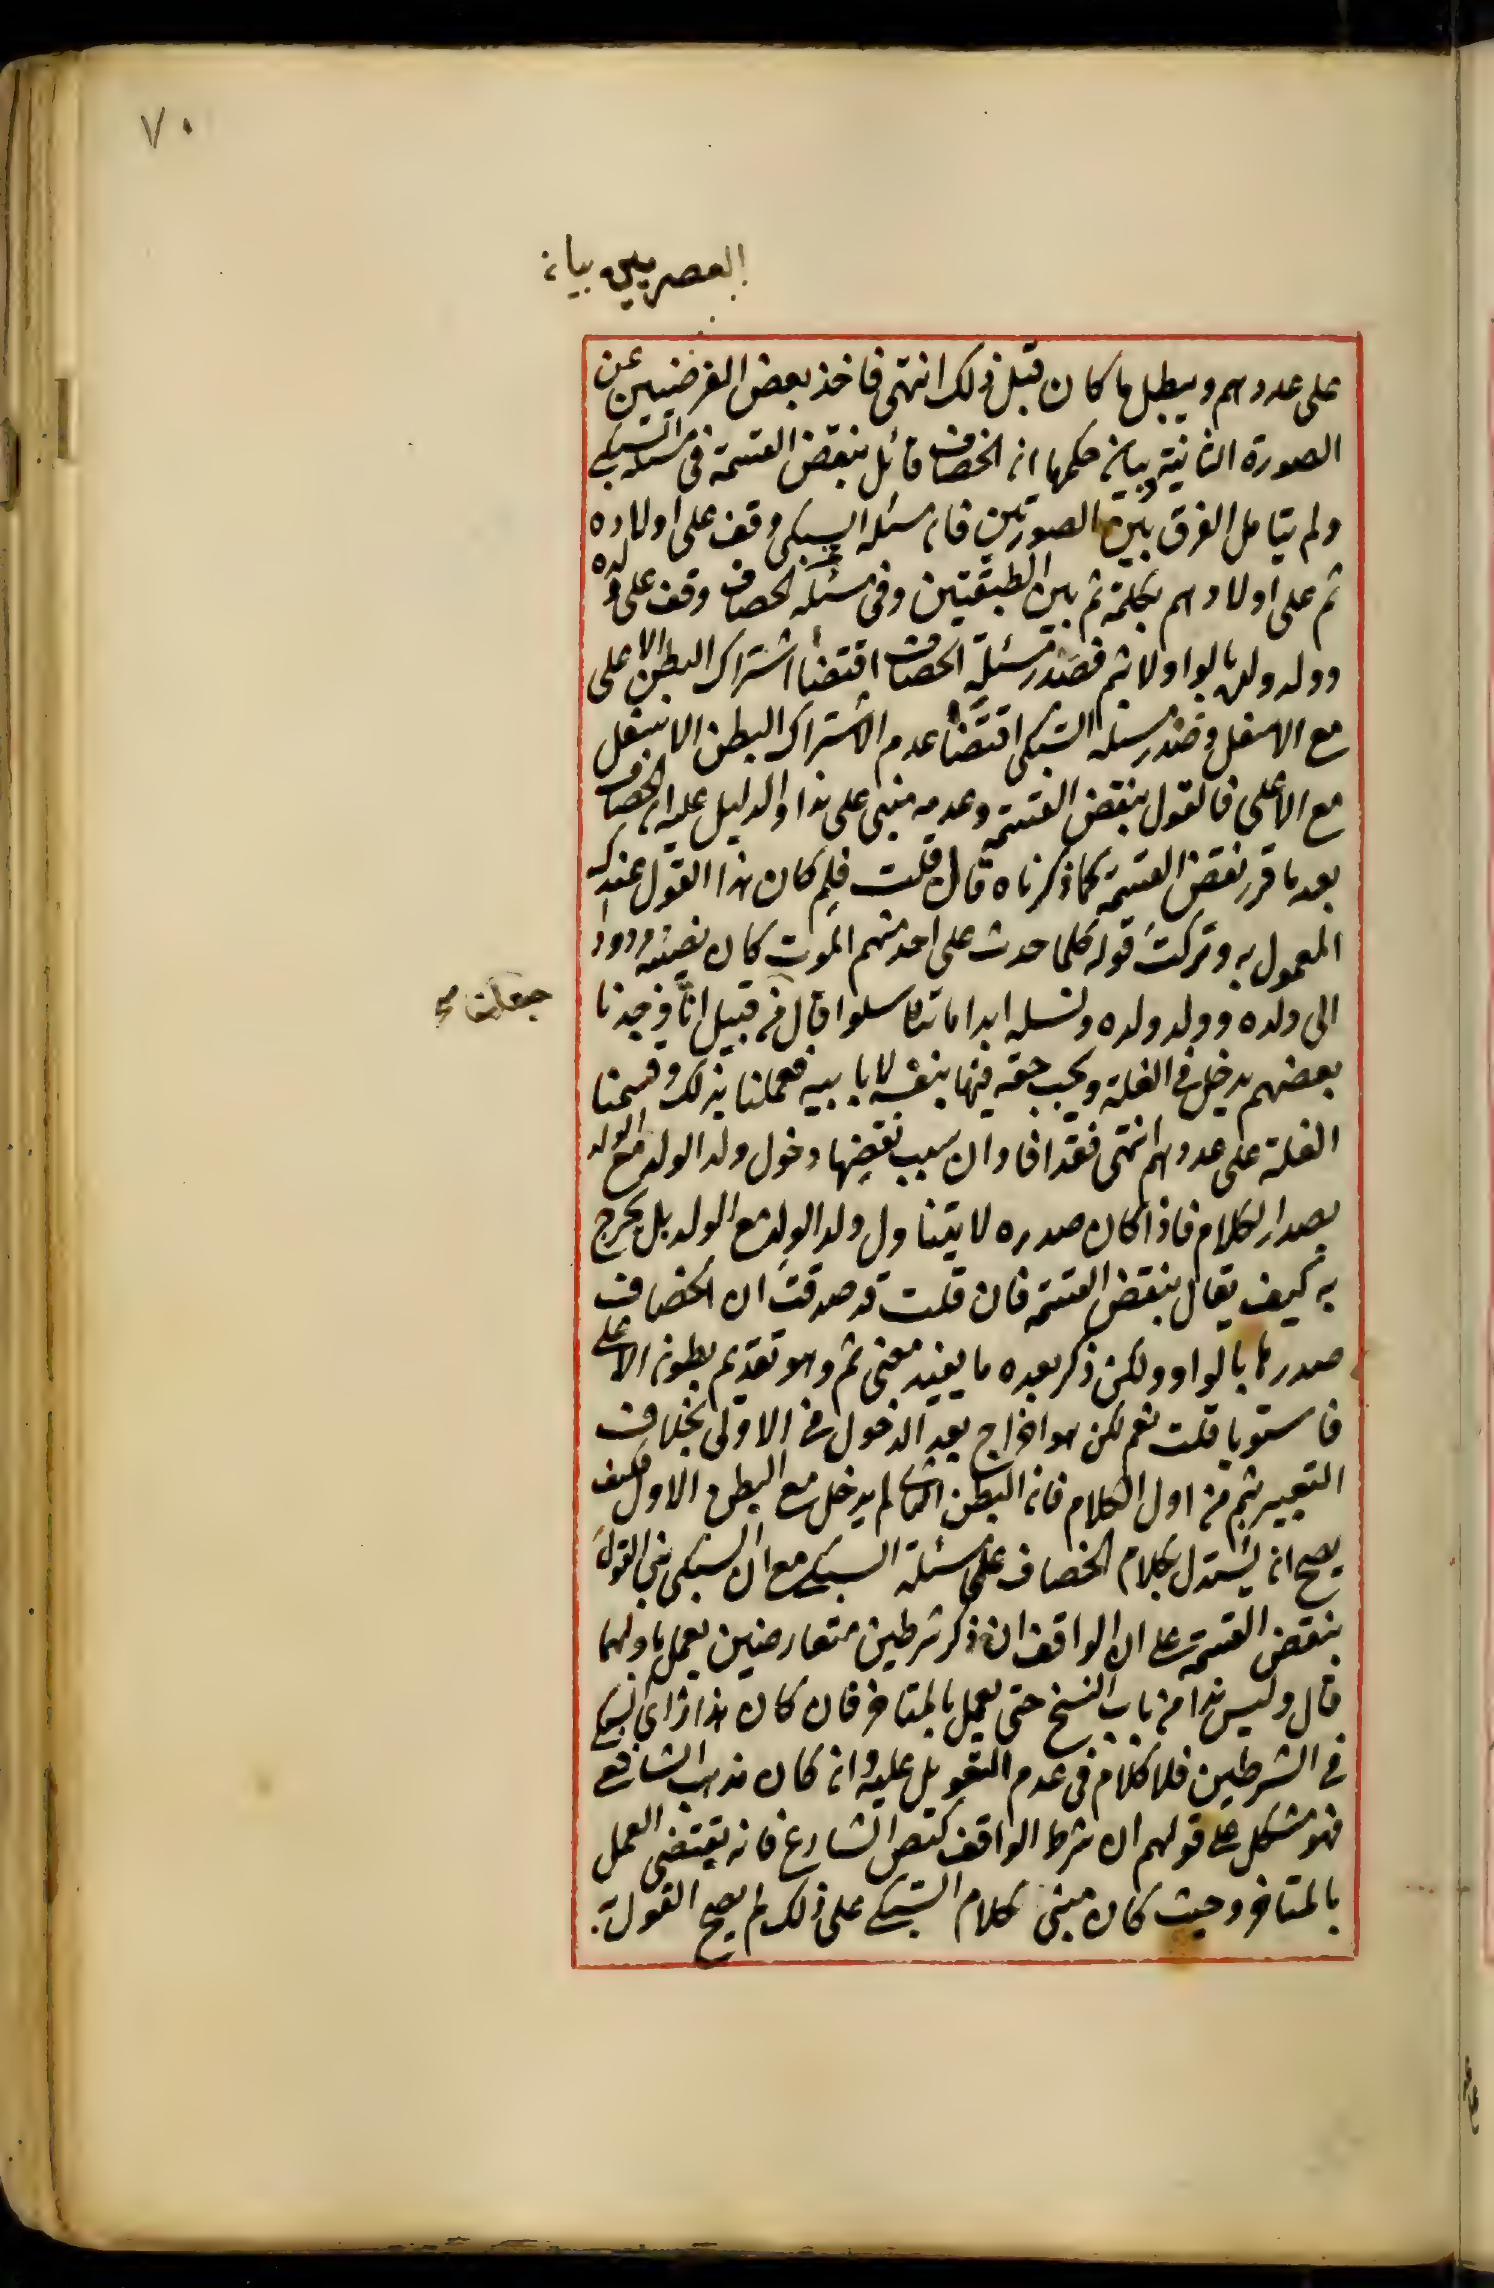 ٧٠
العصريين بيان
على عددهم ويبطل ما كان قبل ذلك انتهى فاخذ بعض الفرضيين عن
الصورة الثانية بيان حكمها ان الخصاف قائل بنقض القسمة فى مسئلة السبكى
ولم يتامل الفرق بين الصورتين فان مسئلة السبكى وقف على اولاده
ثم على اولادهم بكلمة ثم بين الطبقتين وفى مسئلة الخصاف وقف على ولده
وولد ولده بالواو لا بثم فصدر مسئلة الخصاف اقتضا اشتراك البطن الاعلى
مع الاسفل وصدر مسئلة السبكى اقتضا عدم الاشتراك البطن الاسفل
مع الاعلى فالقول بنقض القسمة وعدمه مبنى على هذا والدليل عليه ان الخصاف
بعد ما قرر نقض القسمة كما ذكرناه قال قلت فلم كان هذا القول عندك
المعمول به وتركت قوله كلما حدث على احد منهم الموت كان نصيبه مردودا
الى ولده وولد ولده ونسله ابدا ما تناسلوا قال من قبيل انا وجدنا
جعلناه
بعضهم يدخل فى الغلة ويجب حقه فيها بنفسه لا بابيه فعملنا بذلك وقسمنا
الغلة على عددهم انتهى فقد افاد ان سبب نقضها دخول ولد الولد مع الولد
بصدر الكلام فاذا كان صدره لا يتناول ولد الولد مع الولد بل يخرج
به كيف يقال بنقض القسمة فان قلت قد صدقت ان الخصاف
صدرها بالواو ولكن ذكر بعده ما يفيد معنى ثم وهو تقديم بطون الاعلى
فاستويا قلت نعم لكن هو اخراج بعد الدخول فى الاولى بخلاف
التعبير بثم من اول الكلام فان البطن الثانى لم يدخل مع البطن الاول فكيف
يصح ان يستدل بكلام الخصاف على مسئلة السبكى مع ان السبكى بنى القول
بنقض القسمة على ان الواقف ان ذكر شرطين متعارضين يعمل باولهما
قال وليس هذا من باب النسخ حتى يعمل بالمتاخر فان كان هذا رأى السبكى
فى الشرطين فلا كلام فى عدم التعويل عليه وان كان مذهب الشافعى
فهو مشكل على قولهم ان شرط الواقف كنص الشارع فانه يقتضى العمل
بالمتاخر وحيث كان مبنى كلام السبكى على ذلك لم يصح القول به